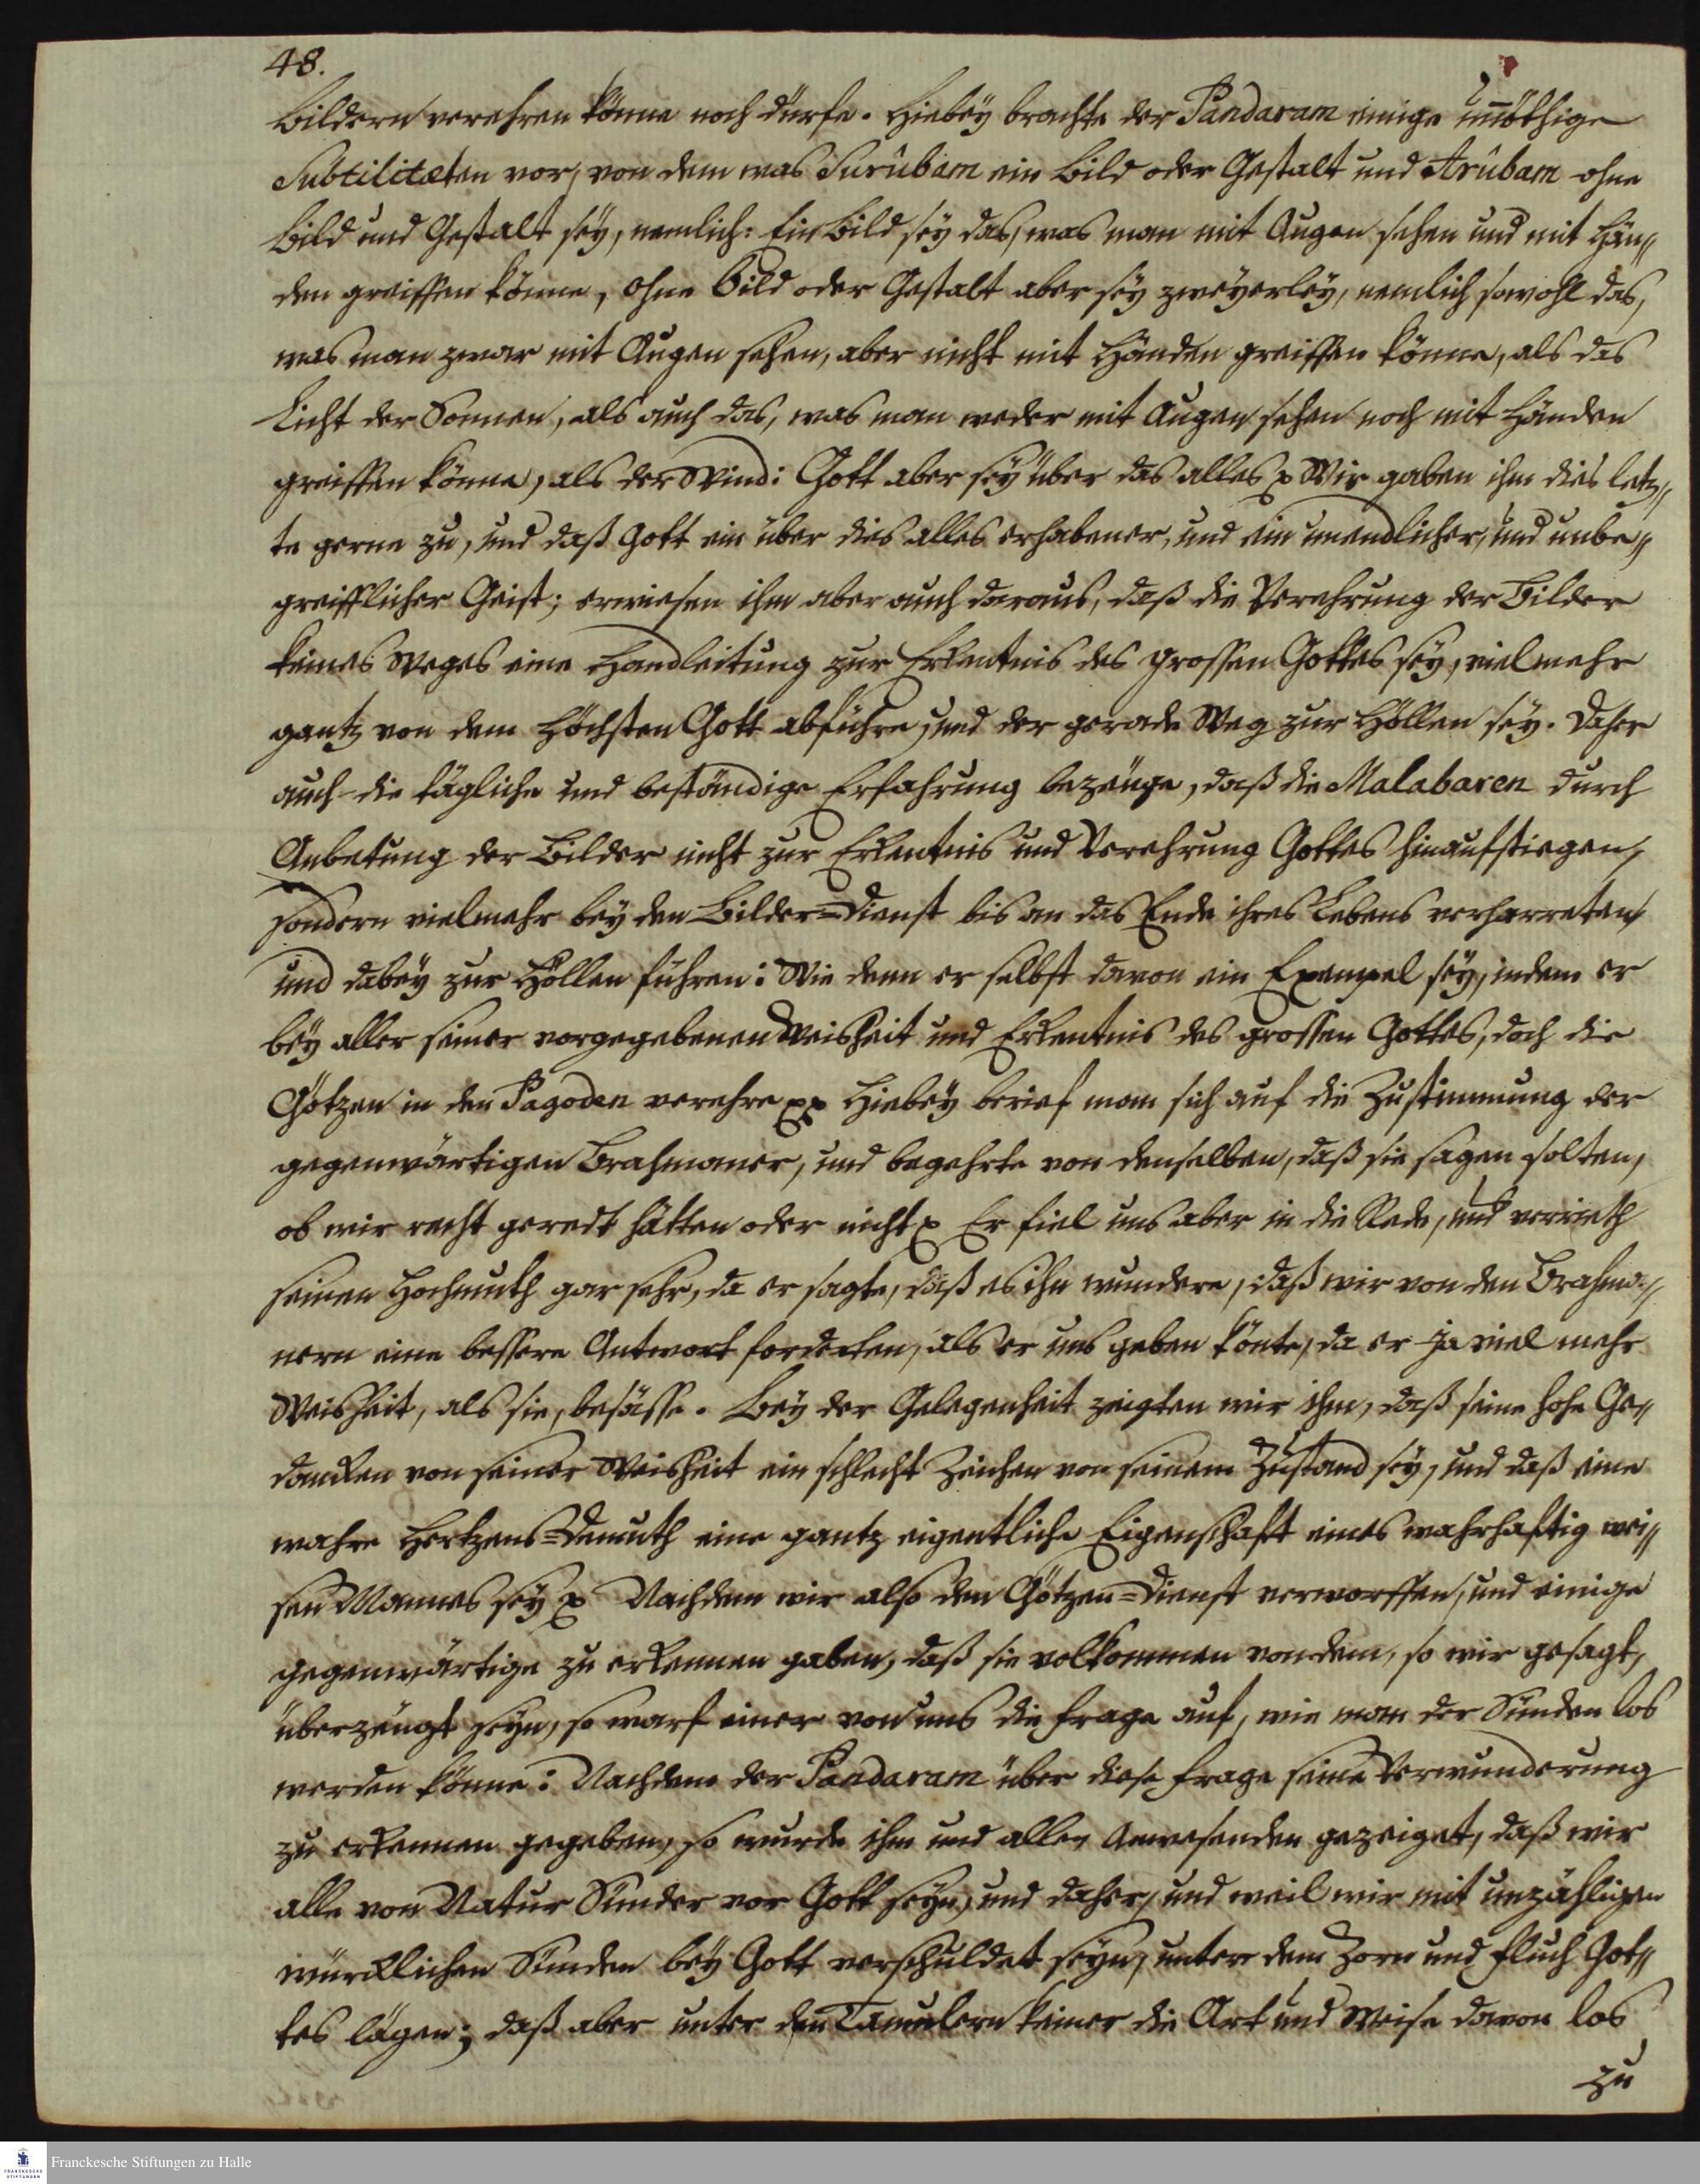 48.
Bildern verehren könne noch dürfe. Hiebey brachte der Pandaram einige unnöthige
Subtilitæten vor, von dem was Surûbam ein Bild oder Gestalt und Arûbam ohne
Bild und Gestalt sey, nemlich: Ein Bild sey das, was man mit Augen sehen und mit Hän„
den greiffen könne, ohne Bild oder Gestalt aber sey zweyerley, nemlich sowohl das,
was man zwar mit Augen sehen, aber nicht mit Händen greiffen könne, als das
Licht der Sonnen, als auch das, was man weder mit Augen sehen noch mit Händen
greiffen könne, als der Wind: Gott aber sey über das alles p Wir gaben ihm dies letz„
te gerne zu, und daß Gott ein über dies alles erhabener, und ein unendlicher, und unbe„
greifflicher Geist; erwiesen ihm aber auch daraus, daß die Verehrung der Bilder
keines Weges eine Handleitung zur Erkentnis des grossen Gottes sey, vielmehr
gantz von dem Höchsten Gott abführe, und der gerade Weg zur Höllen sey. Daher
auch die tägliche und beständige Erfahrung bezeuge, daß die Malabaren durch
Anbetung der Bilder nicht zur Erkentnis und Verehrung Gottes hinaufstiegen,
sondern vielmehr bey den Bilder=Dienst bis an das Ende ihres Lebens verharreten
und dabey zur Höllen führen: Wie denn er selbst davon ein Exempel sey, indem er
bey aller seiner vorgegebenen Weisheit und Erkentnis des grossen Gottes, doch die
Götzen in den Pagoden verehre pp Hiebey berief man sich auf die Zustimmung der
gegenwärtigen Brahmaner, und begehrte von denselben, daß sie sagen solten,
ob wir recht geredt hätten oder nicht p Er fiel uns aber in die Rede, und verrieth
seinen Hochmuth gar sehr, da er sagte, daß es ihn wundere, daß wir von den Brahma„
nern eine bessere Antwort forderten, als er uns geben könte, da er ja viel mehr
Weisheit, als sie, besässe. Bey der Gelegenheit zeigten wir ihm, daß seine hohe Ge„
dancken von seiner Weisheit ein schlecht Zeichen von seinem Zustand sey, und daß eine
wahre Hertzens=Demuth eine gantz eigentliche Eigenschaft eines wahrhaftig wei„
sen Mannes sey p Nachdem wir also den Götzen=Dienst verworffen, und einige
gegenwärtige zu erkennen gaben, daß sie volkommen von dem, so wir gesagt,
überzeugt seyn, so warf einer von uns die Frage auf, wie man der Sünden los
werden könne: Nachdem der Pandaram über diese Frage seine Verwunderung
zu erkennen gegeben, so wurde ihm und allen Anwesenden gezeiget, daß wir
alle von Natur Sünder vor Gott seyn, und daher, und weil wir mit unzähligen
würcklichen Sünden bey Gott verschuldet seyn, unter dem Zorn und Fluch Got„
tes lägen; daß aber unter den Tamulern keiner die Art und Weise davon los
zu
Franckesche Stiftungen zu Halle